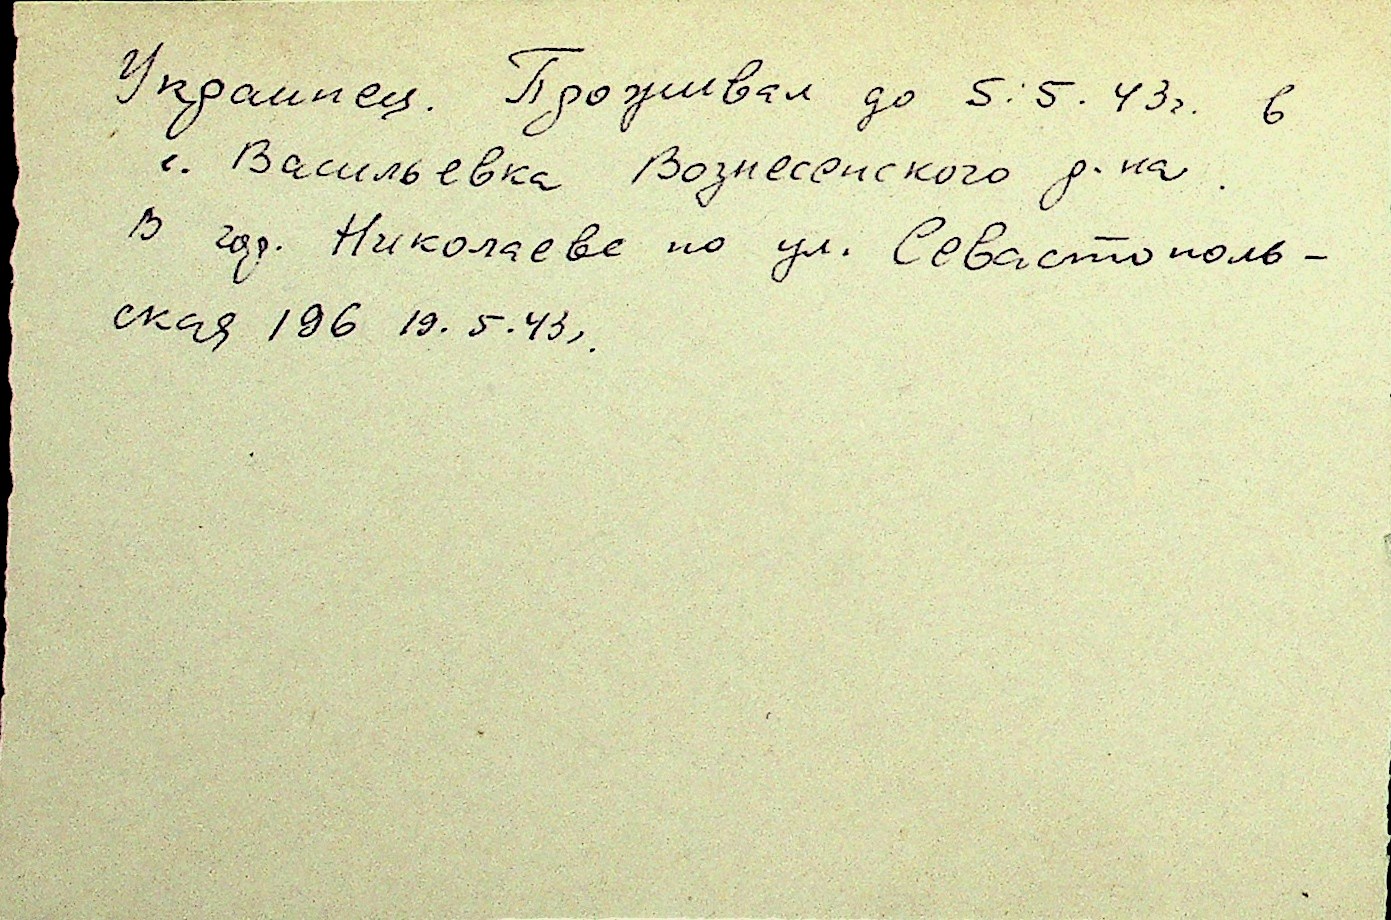 Украинец. Проживал до 5.5.43г. в
с. Васильевка Вознесенского р-на.
В гор. Николаеве по ул. Севастополь-
ская 196 19.5.43г.